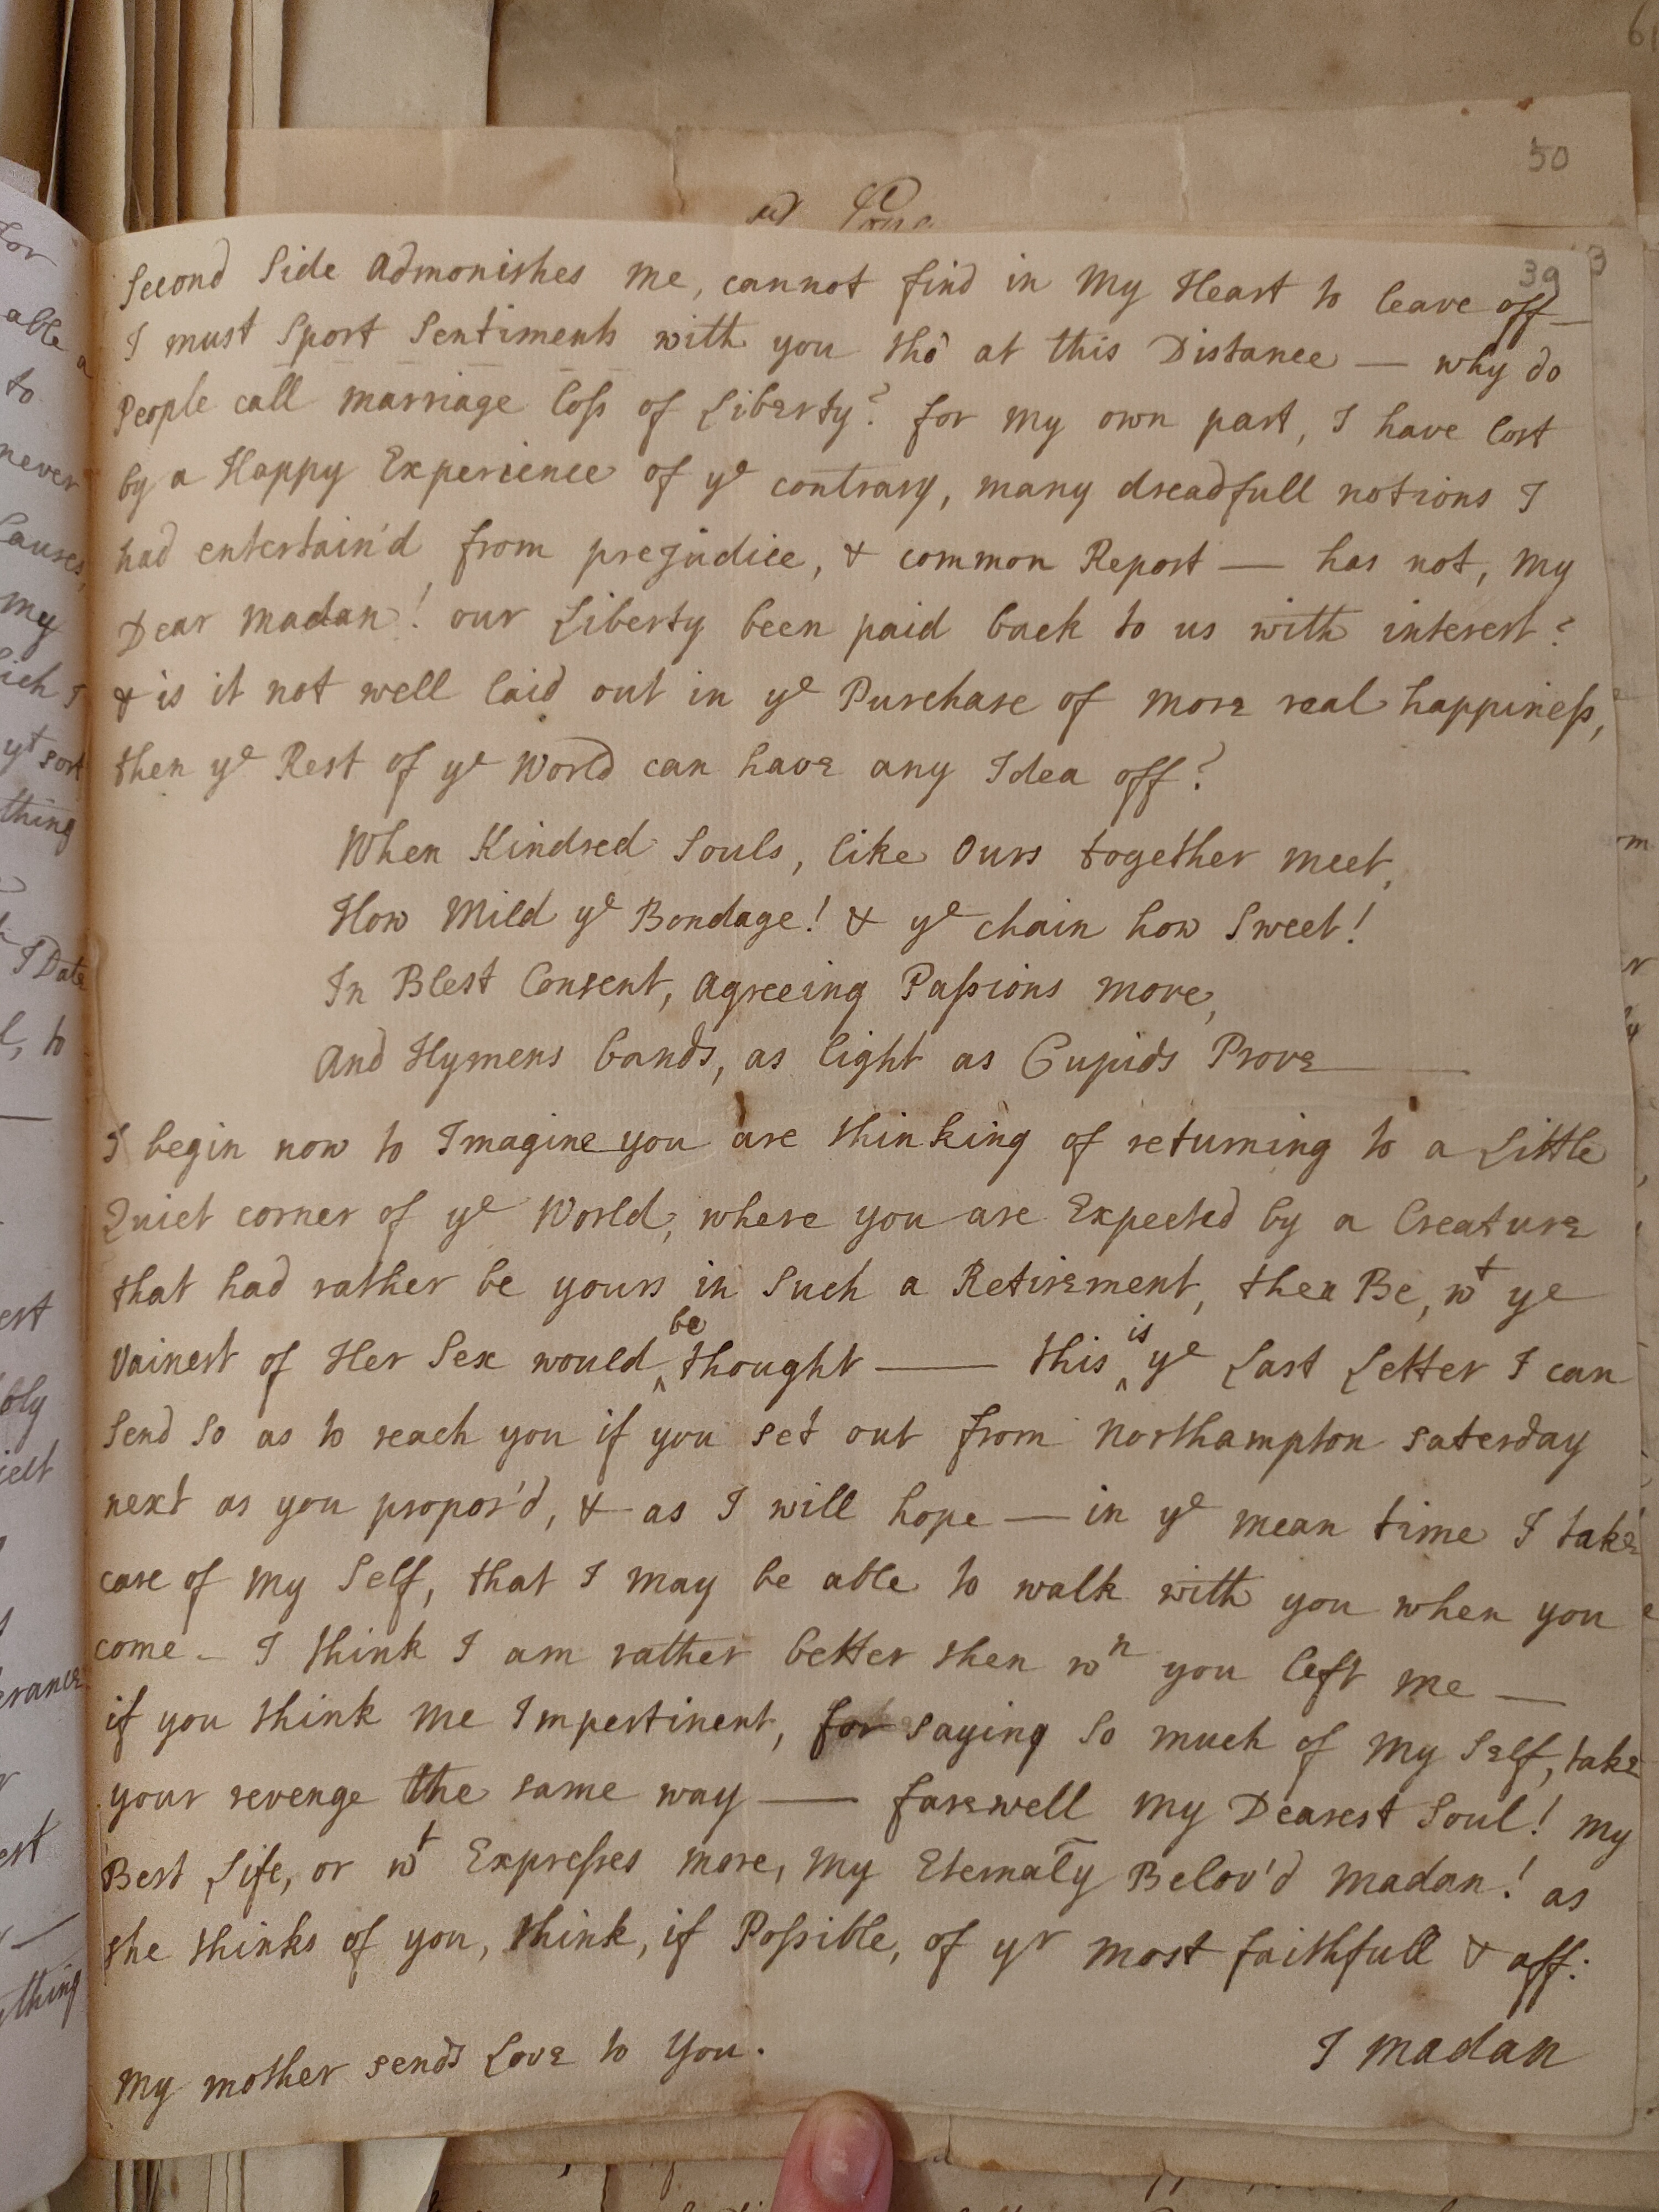 50
39
Second Side admonishes me, cannot find in My Heart to leave off—
I must Sport Sentiments with you tho' at this Distance — why do
People call marriage loss of Liberty? for my own part, I have lost
by a Happy Experience of ye contrary, many dreadfull notions I
had entertain'd from prejudice, & common Report — has not, My
Dear Madan! our Liberty been paid back to us with interest?
& is it not well laid out in ye Purchase of more real happiness,
then ye Rest of ye World can have any Idea off?
When Kindred Souls, like Ours together meet,
How Mild ye Bondage! & ye chain how Sweet!
In Blest Consent, agreeing Passions move,
And Hymens bands, as light as Cupids Prove —
I begin now to Imagine you are thinking of returning to a Little
Quiet corner of ye World, where you are Expected by a Creature
that had rather be yours in Such a Retirement, then Be, wt ye
Vainest of Her Sex would be thought —— this is ye Last Letter I can
Send So as to reach you if you set out from Northampton saterday
next as you propos'd, & as I will hope — in ye mean time I take
care of My Self, that I may be able to walk with you when you
come — I think I am rather better then wn you left me —
if you think me Impertinent, for saying So much of My Self, take
your revenge the same way —— farewell My Dearest Soul! My
Best Life, or wt Expresses more, My Eternaly Belov'd Madan! as
she thinks of you, think, if Possible, of yr most faithfull & aff:
J Madan
My mother sends Love to You.